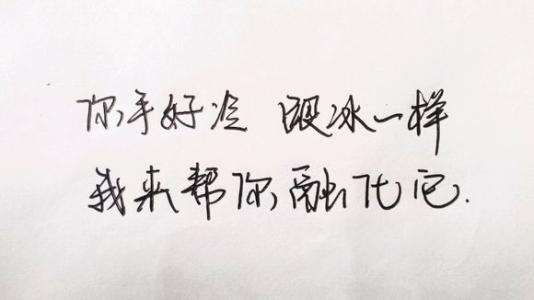 你手好冷 跟冰一样
我来帮你融化它.